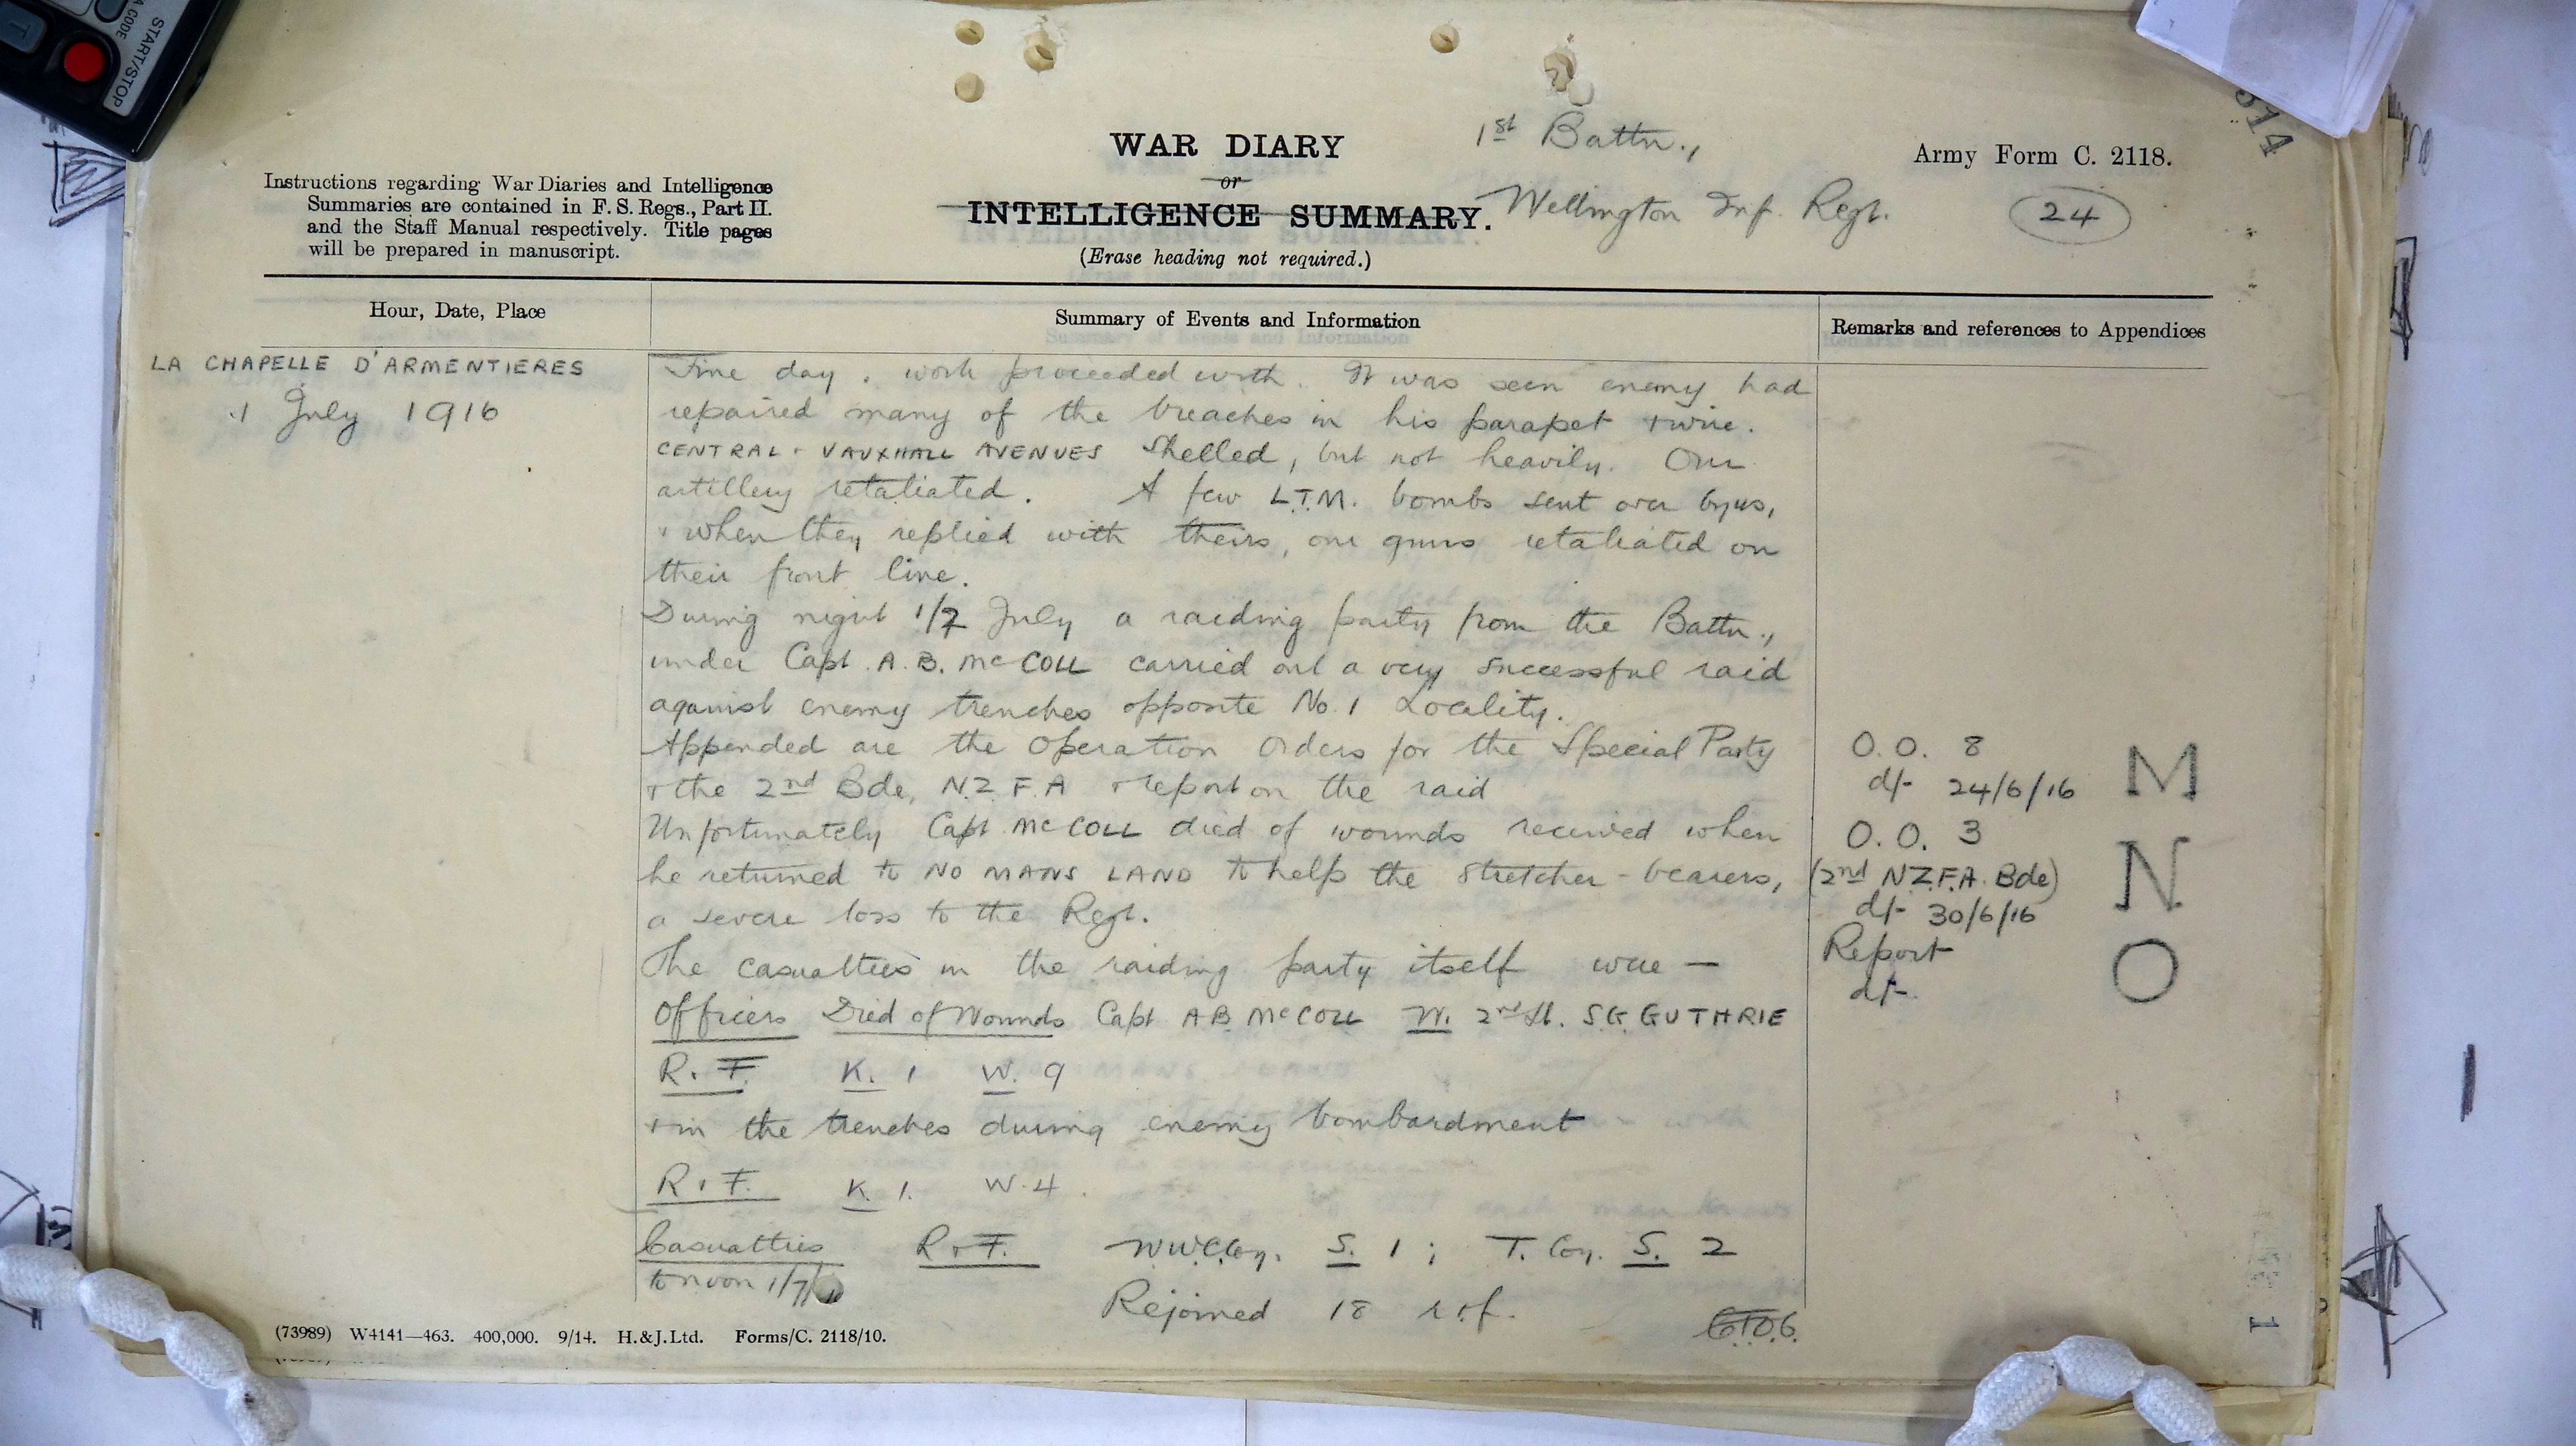 START/STOP
A CODE
T
1st Battn.,
WAR DIARY
or
INTELLIGENCE SUMMARY.
(Erase heading not required.)
Wellington Inf. Regt.
Army Form C. 2118.
24
514
Instructions regarding War Diaries and Intelligence
Summaries are contained in F. S. Regs., Part II.
and the Staff Manual respectively. Title pages
will be prepared in manuscript.
Hour, Date, Place
Summary of Events and Information
Remarks and references to Appendices
LA CHAPELLE D'ARMENTIERES
1 July 1916
Fine day. work proceeded with. It was seen enemy had
repaired many of the breaches in his parapet + wire.
CENTRAL + VAUXHALL AVENUES Shelled, but not heavily. Our
artillery retaliated. A few L.T.M. bombs sent over by us,
+ when they replied with theirs, our guns retaliated on
their front line.
During night 1/2 July a raiding party from the Battn.,
under Capt. A. B. McCOLL carried out a very successful raid
against enemy trenches opposite No. 1 Locality.
Appended are the Operation Orders for the Special Party
+ the 2nd Bde, N.Z.F.A + report on the raid
Unfortunately Capt McCOLL died of wounds received when
he returned to NO MANS LAND to help the stretcher-bearers,
a severe loss to the Regt.
The casualties in the raiding party itself were —
Officers Died of Wounds Capt AB McCOLL W. 2nd Lt. S.G. GUTHRIE
R. + F. K. 1 W. 9
+ in the trenches during enemy bombardment
R + F. K. 1. W. 4.
Casualties R + F. WWCCoy. S. 1 ; T. Coy. S. 2
to noon 1/7/
Rejoined 18 r+f.
O.O. 8 M
d/- 24/6/16
O.O. 3 N
(2nd N.Z.F.A. Bde)
d/- 30/6/16
Report O
d/-
(73989) W4141—463. 400,000. 9/14. H.&J.Ltd. Forms/C. 2118/10.
1